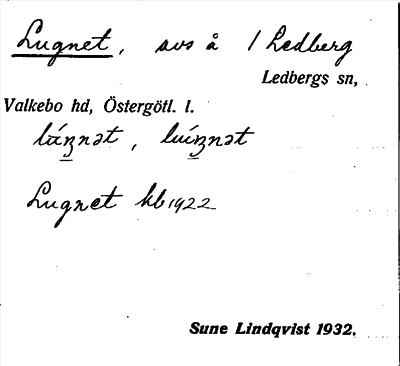 Lugnet, avs å 1 Ledberg
Ledbergs sn,
Valkebo hd, Östergötl. l.
Lugnet kb 1922
Sune Lindqvist 1932.